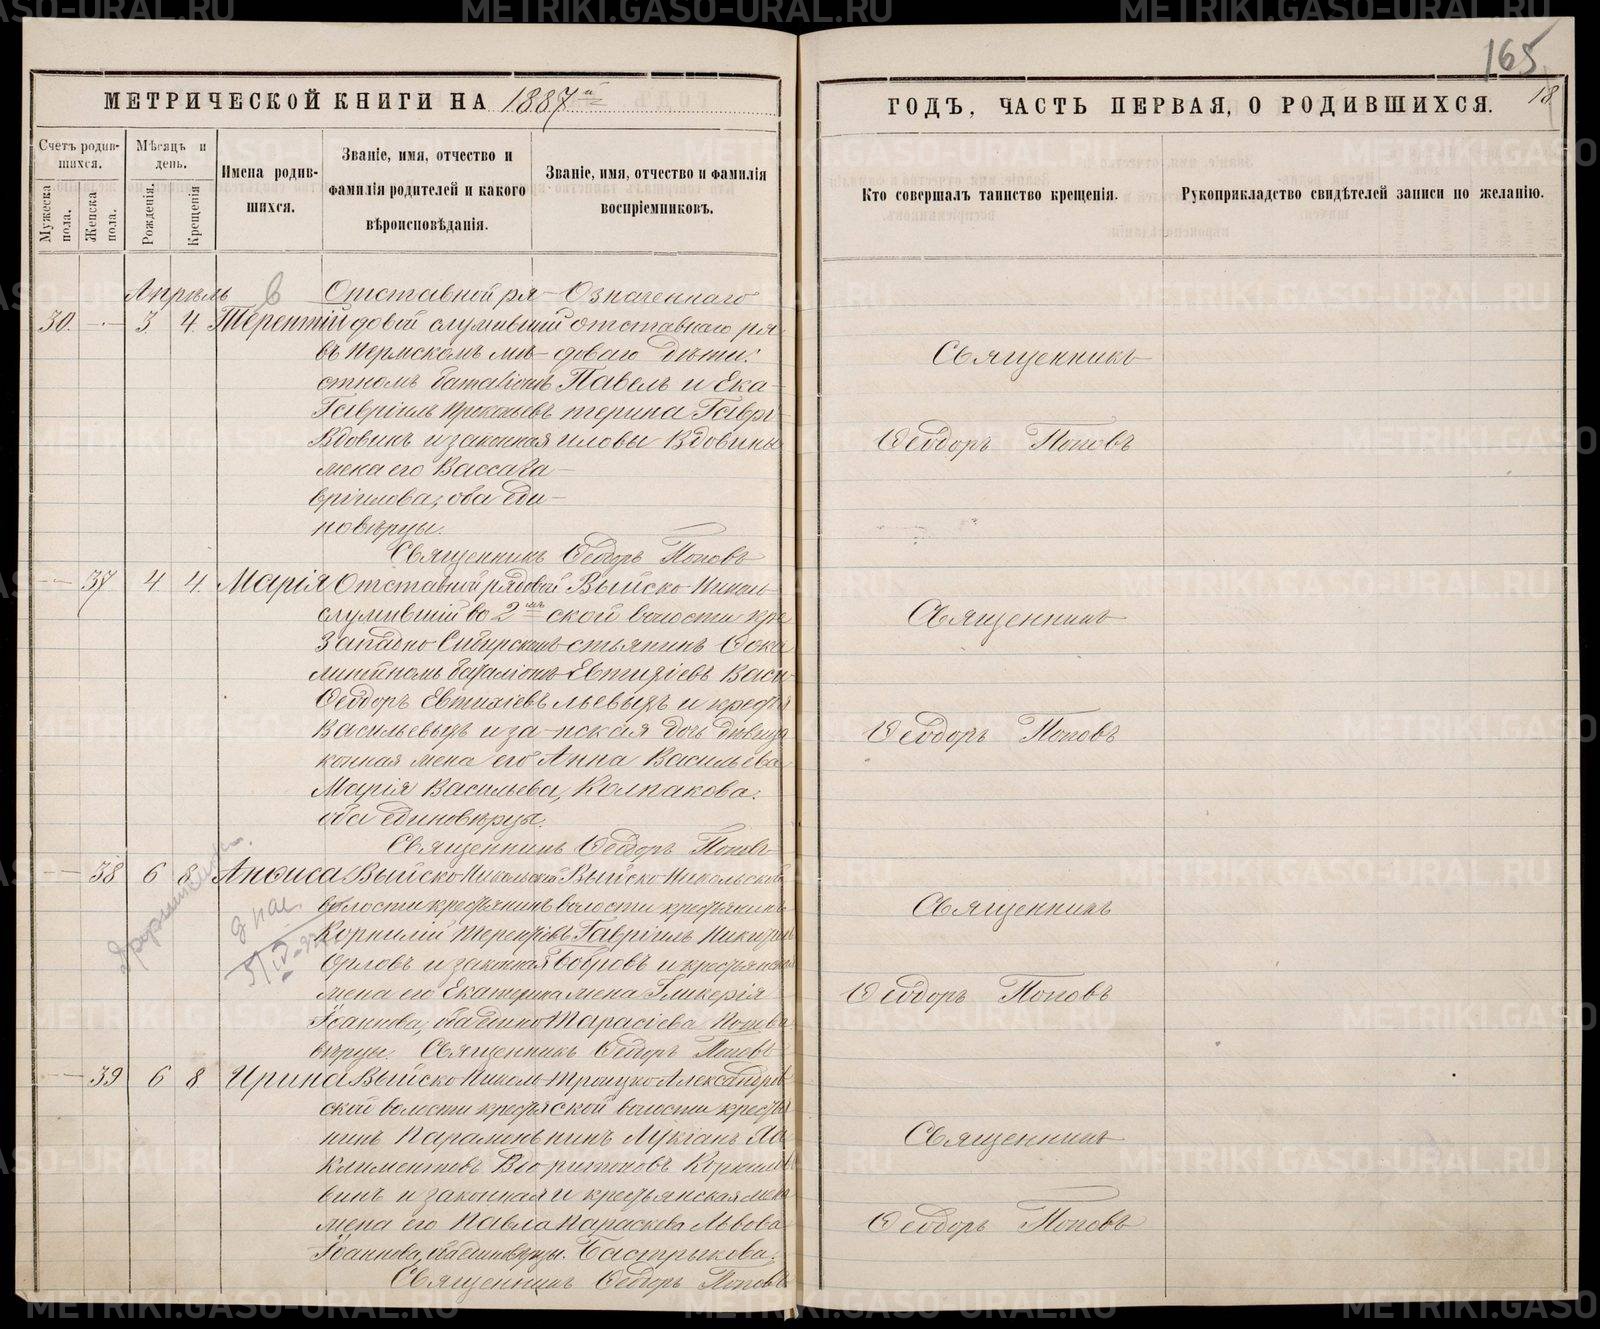 165
18
МЕТРИЧЕСКОЙ КНИГИ НА 1887й
ГОДЪ, ЧАСТЬ ПЕРВАЯ, О РОДИВШИХСЯ.
Счетъ родив-
шихся.
Мужеска
пола.
Женска
пола.
Мѣсяцъ и
день.
Рожденія.
Крещенія
Имена родив-
шихся.
Званіе, имя, отчество и
фамилія родителей и какого
вѣроисповѣданія.
Званіе, имя, отчество и фамилія
воспріемниковъ.
Кто совершалъ таинство крещенія.
Рукоприкладство свидѣтелей записи по желанію.
Апрѣль
30. 3 4 Терентій
Отставной ря-
довой служившій
въ Пермскомъ мѣ-
стномъ баталіонѣ
Гавріилъ Прокопьевъ
Вдовинъ и законная
жена его Васса Га-
вріилова, оба еди-
новѣрцы.
Означеннаго
отставнаго ря-
доваго дѣти:
Павелъ и Ека-
терина Гаврі-
иловы Вдовины
Священникъ Ѳеодоръ Поповъ
Священникъ
Ѳеодоръ Поповъ
37 4 4 Марія
Отставной рядовой
служившій во 2мъ
Западно Сибирскомъ
линѣйномъ баталіонѣ
Ѳеодоръ Евтихіевъ
Васильевыхъ и за-
конная жена его
Марія Васильева,
оба единовѣрцы.
Выйско-Николь-
ской волости кре
стьянинъ Ѳока
Евтихіевъ Васи-
льевыхъ и крестья
нская дочь дѣвица
Анна Васильева
Колпакова.
Священникъ Ѳеодоръ Поповъ
Священникъ
Ѳеодоръ Поповъ
38 6 8 Анѳиса
Выйско-Никольской
волости крестьянинъ
Корнилій Терентіевъ
Орловъ и законная
жена его Екатерина
Іоаннова, оба едино
вѣрцы.
Выйско-Никольской
волости крестьянинъ
Гавріилъ Никитинъ
Бобровъ и крестьянская
жена Гликерія
Тарасіева Попова
Священникъ Ѳеодоръ Поповъ
Священникъ
Ѳеодоръ Поповъ
39 6 8 Ирина
Выйско Николь-
ской волости крестья
нинъ Парамонъ
Климентовъ Вдо
винъ и законная
жена его Павла
Іоаннова, оба единовѣрцы.
Троицко Александров
ской волости крестья
нинъ Лукіанъ Ха
ритоновъ Корюков
и крестьянская жена
Параскева Львова
Бастрыкова.
Священникъ Ѳеодоръ Поповъ
Священникъ
Ѳеодоръ Поповъ
METRIKI.GASO-URAL.RU